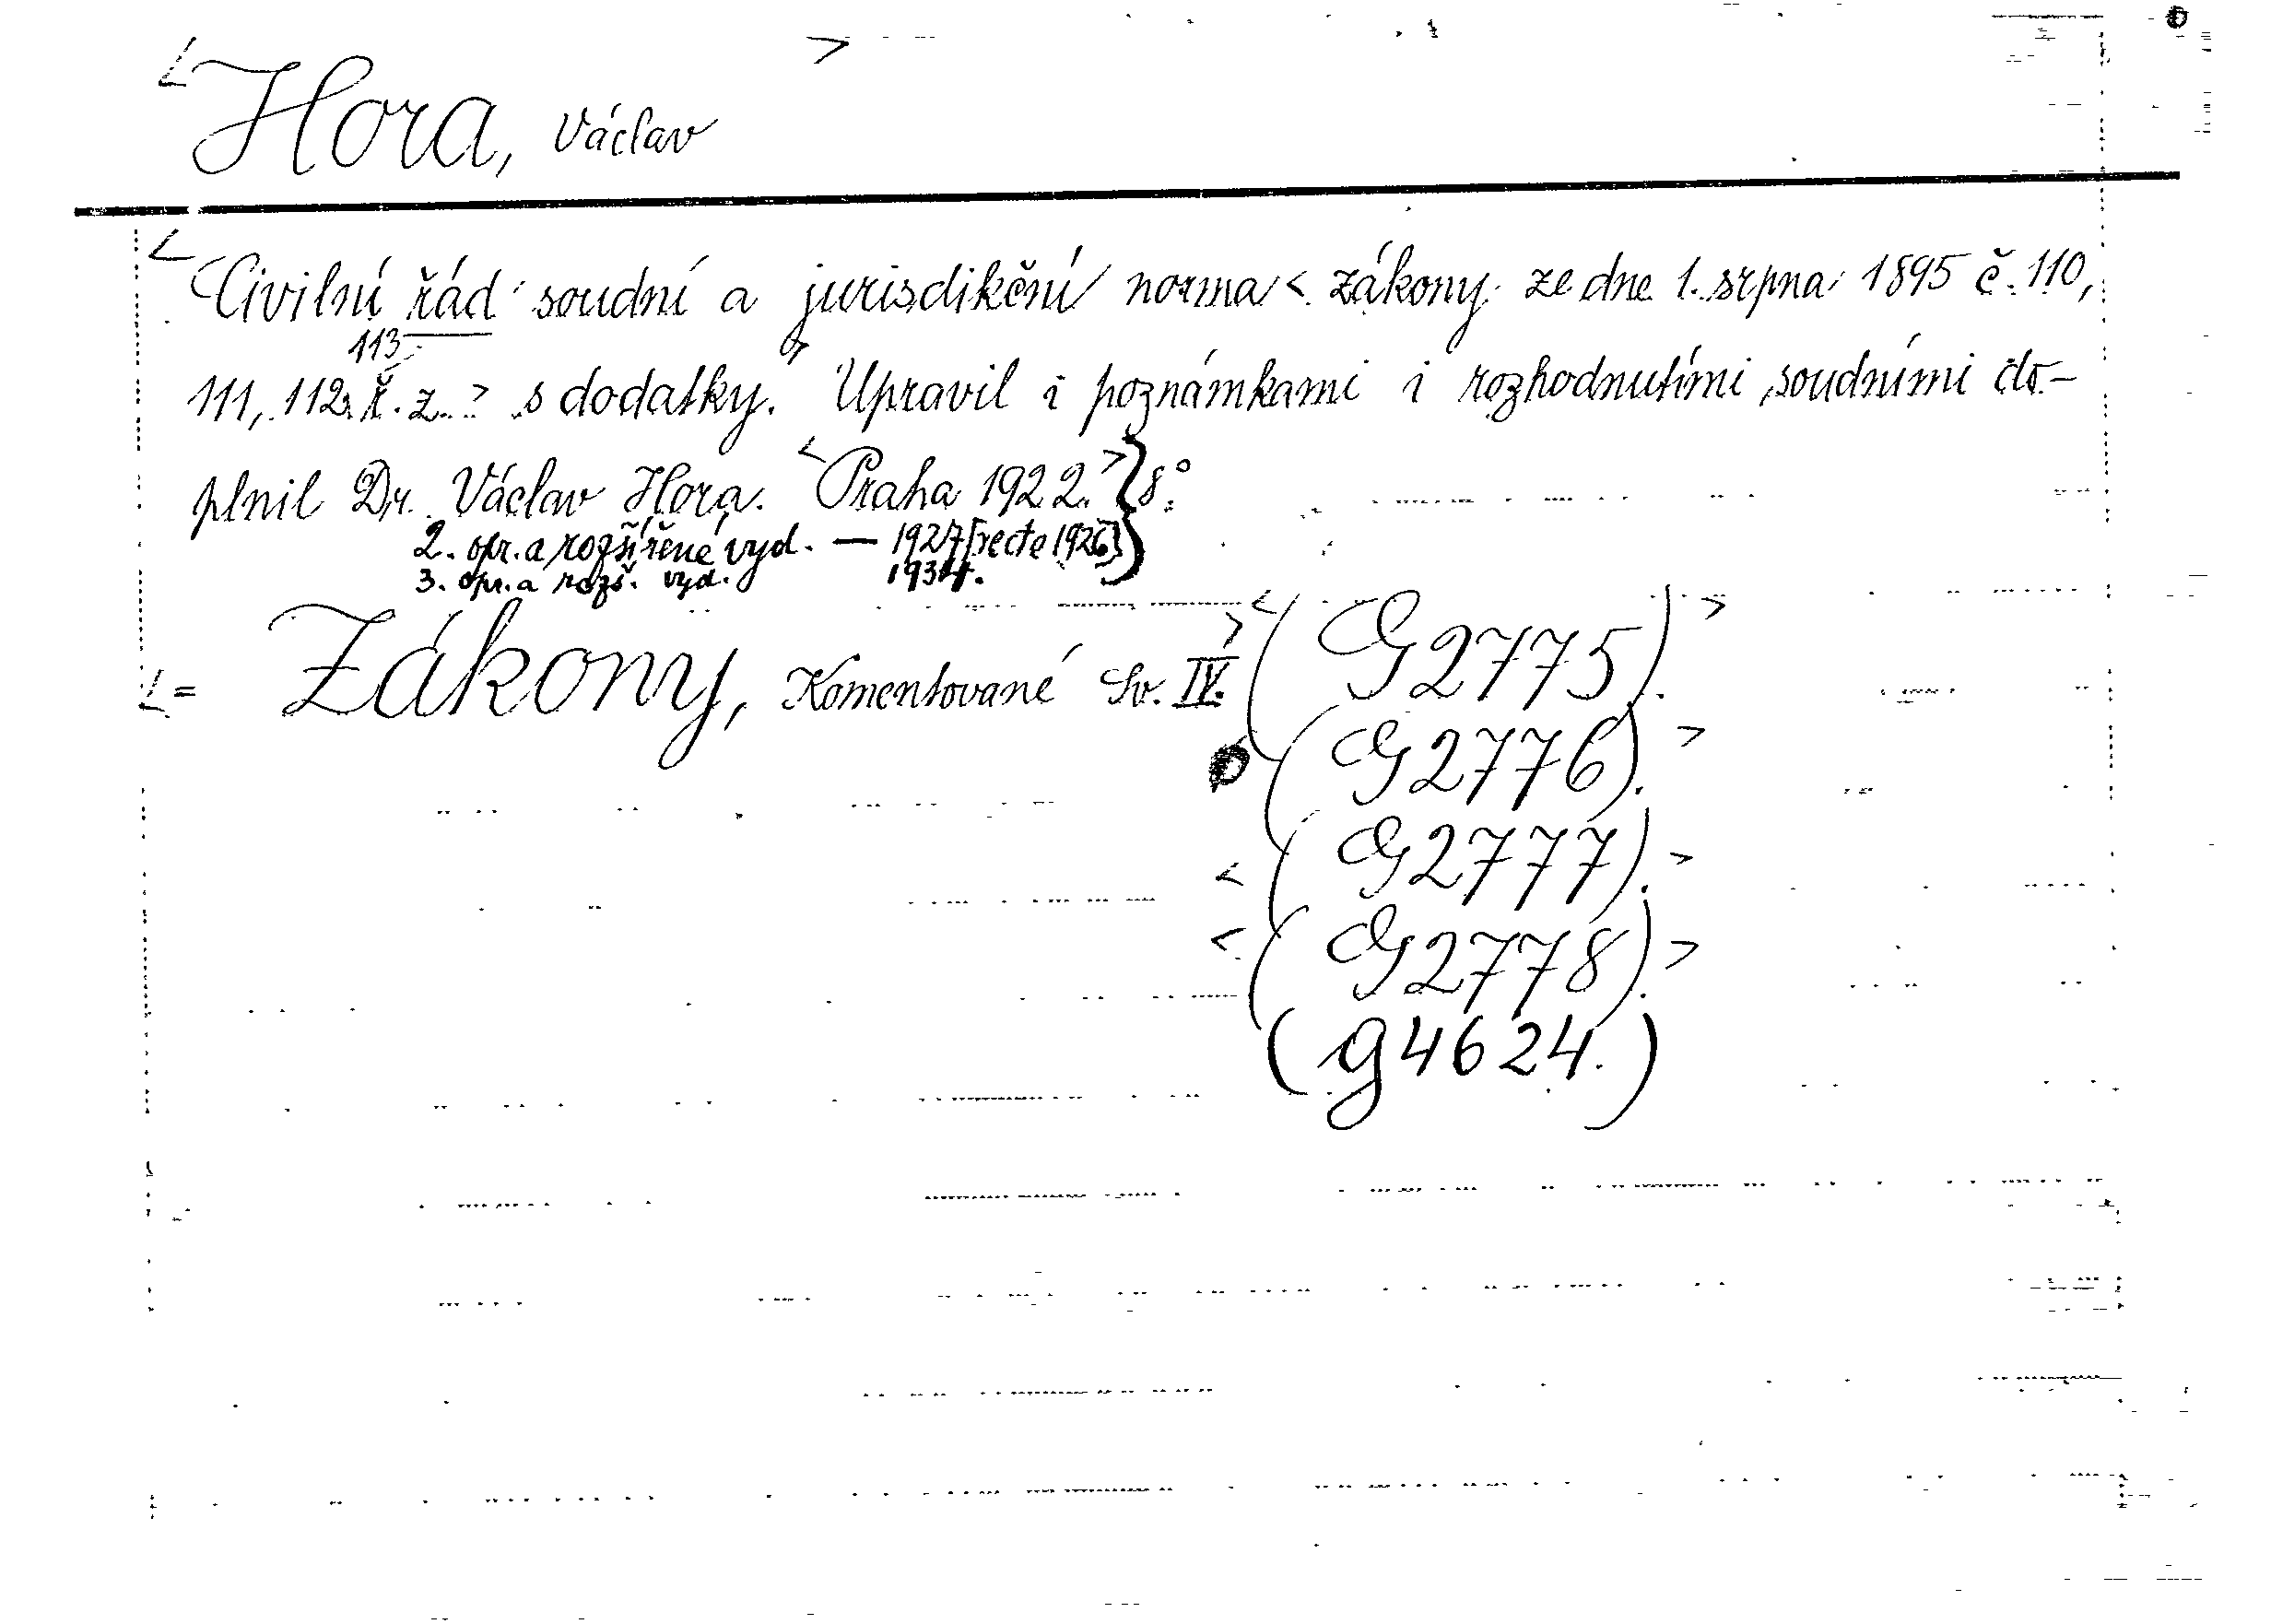 <Hora, Václav>
<Civilní řád soudní a jurisdikční norma <zákony ze dne 1. srpna 1895 č. 110,
113
111, 112 ř. z.> s dodatky. Upravil i poznámkami i rozhodnutími soudními do-
plnil Dr. Václav Hora. <Praha 1922.>} 8°.
2. opr. a rozšířené vyd. — 1927 [recte 1926]}
3. opr. a rozš. vyd. 1934.
<= Zákony, Komentované Sv. IV.>
<(G2775).>
(G2776).>
<(G2777).>
<(G2778).>
(g4624.)